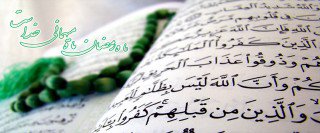 ماه رمضان ماه میهمانی خداست
فِي قُلُوبِهِم
الَّذِينَ كَفَرُوا
وَذُوقُوا عَذَابَ الْحَرِيقِ
كُمْ وَأَنَّ اللَّهَ لَيْسَ بِظَلَّامٍ
وَالَّذِينَ مِن قَبْلِهِمْ كَفَرُوا